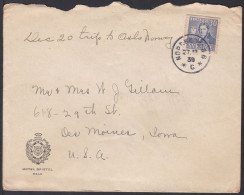 Dec 20 trip to Oslo Norway
27.11
39
C
Mr & Mrs W J Gillam
618-29th St.
Des Moines, Iowa
U.S.A.
HOTEL BRISTOL
OSLO